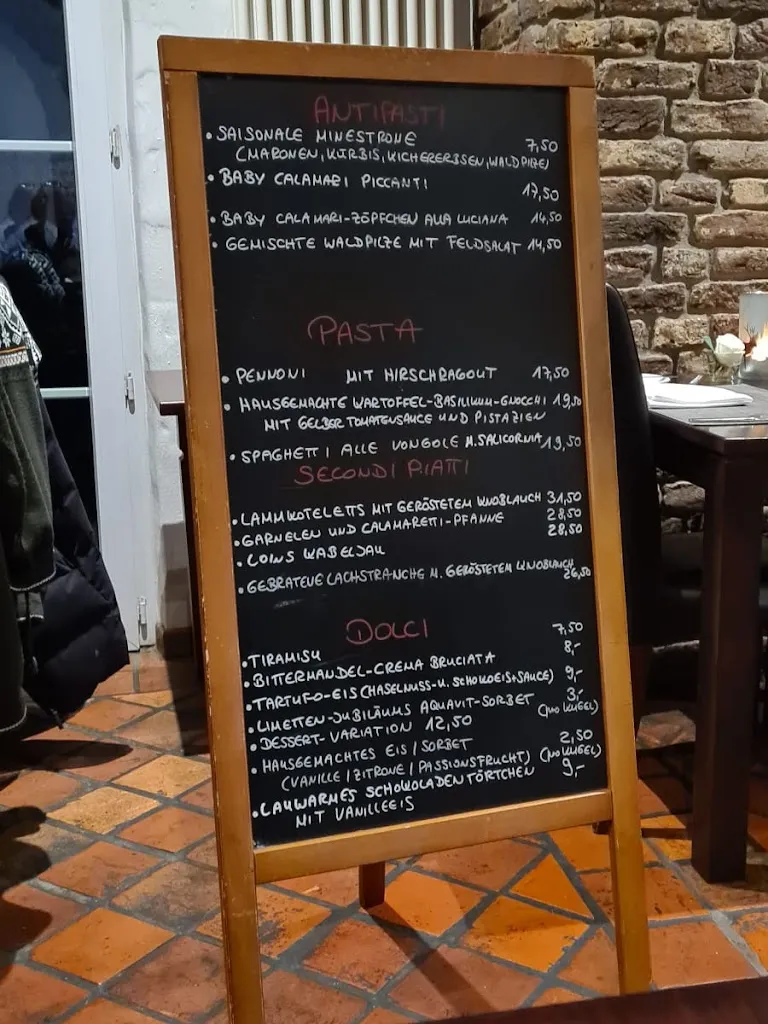 ANTIPASTI
• SAISONALE MINESTRONE 7,50
(MARONEN, KÜRBIS, KICHERERBSEN, WALDPILZE)
• BABY CALAMARI PICCANTI 17,50
• BABY CALAMARI-ZÖPFCHEN ALLA LUCIANA 14,50
• GEMISCHTE WALDPILZE MIT FELDSALAT 14,50
PASTA
• PENNONI MIT HIRSCHRAGOUT 17,50
• HAUSGEMACHTE KARTOFFEL-BASILIKUM-GNOCCHI 19,50
MIT GELBER TOMATENSAUCE UND PISTAZIEN
• SPAGHETTI ALLE VONGOLE M. SALICORNIA 19,50
SECONDI PIATTI
• LAMMKOTELETTS MIT GERÖSTETEM KNOBLAUCH 31,50
• GARNELEN UND CALAMARETTI-PFANNE 28,50
• LOINS KABELJAU 28,50
• GEBRATENE LACHSTRANCHE M. GERÖSTETEM KNOBLAUCH
26,50
DOLCI
• TIRAMISU 7,50
• BITTERMANDEL-CREMA BRUCIATA 8,-
• TARTUFO-EIS (HASELNUSS-U. SCHOKOEIS+SAUCE) 9,-
• LIMETTEN-JUBILÄUMS AQUAVIT-SORBET 3,-
(PRO KUGEL)
• DESSERT-VARIATION 12,50
• HAUSGEMACHTES EIS / SORBET 2,50
(VANILLE / ZITRONE / PASSIONSFRUCHT) (PRO KUGEL)
• LAUWARMES SCHOKOLADENTÖRTCHEN 9,-
MIT VANILLEEIS